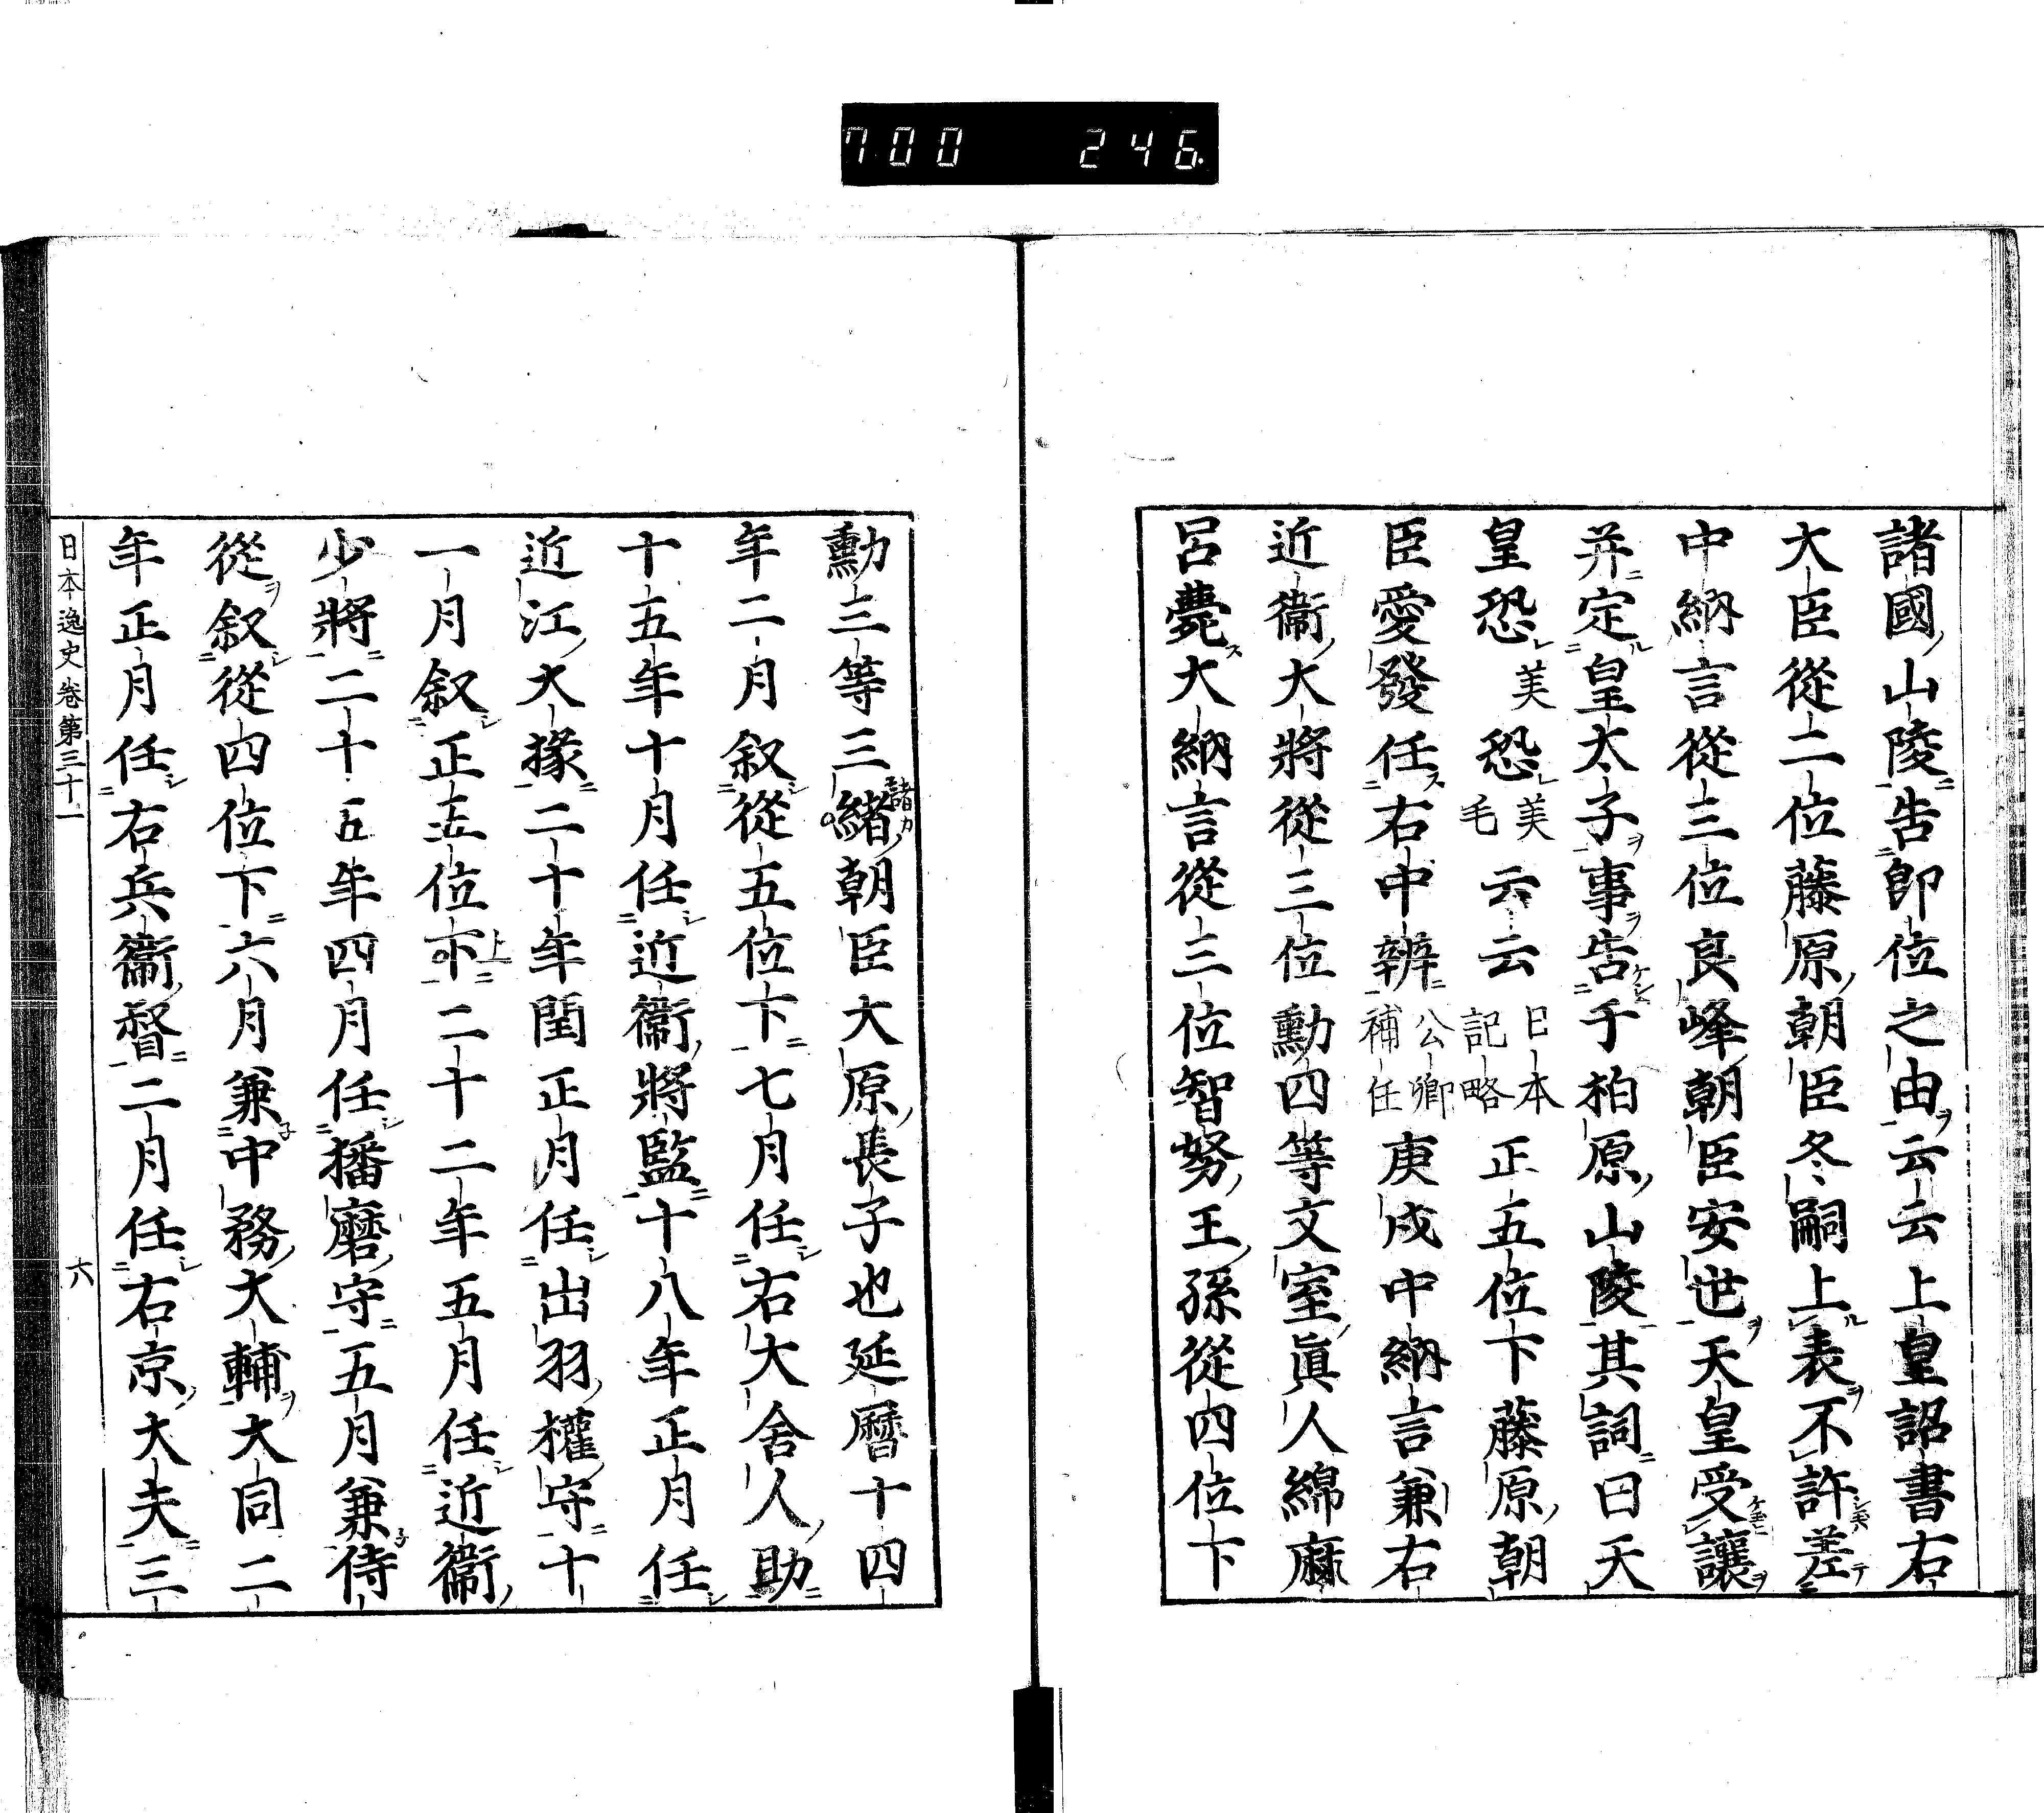 700 246
諸國山陵告即位之由云云上皇詔書右
大臣從二位藤原朝臣冬嗣上表不許差
中納言從三位良峰朝臣安世天皇受讓
并定皇太子事告于柏原山陵其詞曰天
皇恐美恐美毛云云日本記略正五位下藤原朝
臣愛發任右中辨公卿補任庚戌中納言兼右
近衞大將從三位勳四等文室眞人綿麻
呂薨大納言從三位智努王孫從四位下
勳三等三緒朝臣大原長子也延曆十四
諸カ
年二月叙從五位下七月任右大舍人助
十五年十月任近衞將監十八年正月任
近江大掾二十年閏正月任出羽權守十
一月叙正五位下二十二年五月任近衞
上
少將二十五年四月任播磨守五月兼侍
從叙從四位下六月兼中務大輔大同二
年正月任右兵衞督二月任右京大夫三
日本逸史卷第三十一 六